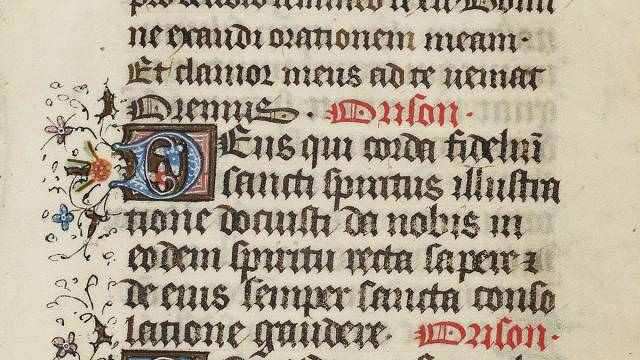 ne exaudi orationem meam·
Et clamor meus ad te veniat
Oremus. Orison·
Deus qui corda fideliū
sancti spiritus illustra
tione docuisti da nobis in
eodem spiritu recta sapere ⁊
de eius semper sancta conso
latione gaudere· Orison·